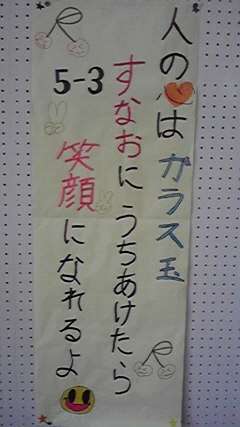 人の心は ガラス玉
すなおにうちあけたら
笑顔になれるよ
5-3